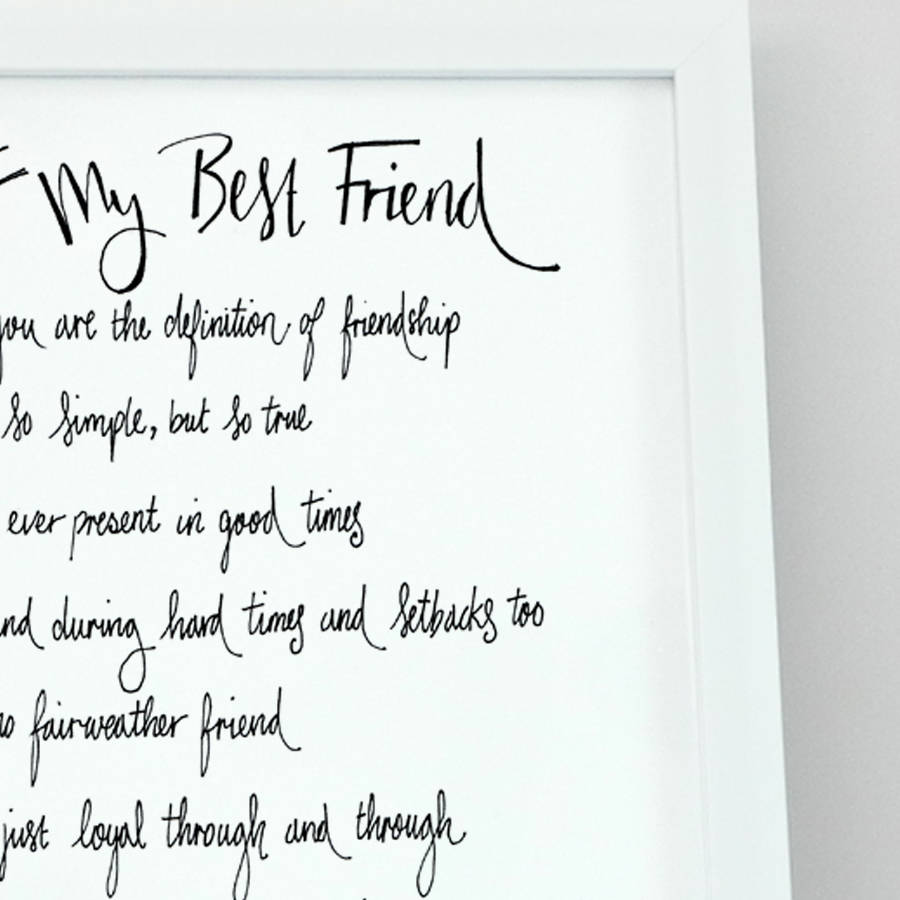 My Best Friend
you are the definition of friendship
so simple, but so true
ever present in good times
and during hard times and setbacks too
fairweather friend
just loyal through and through